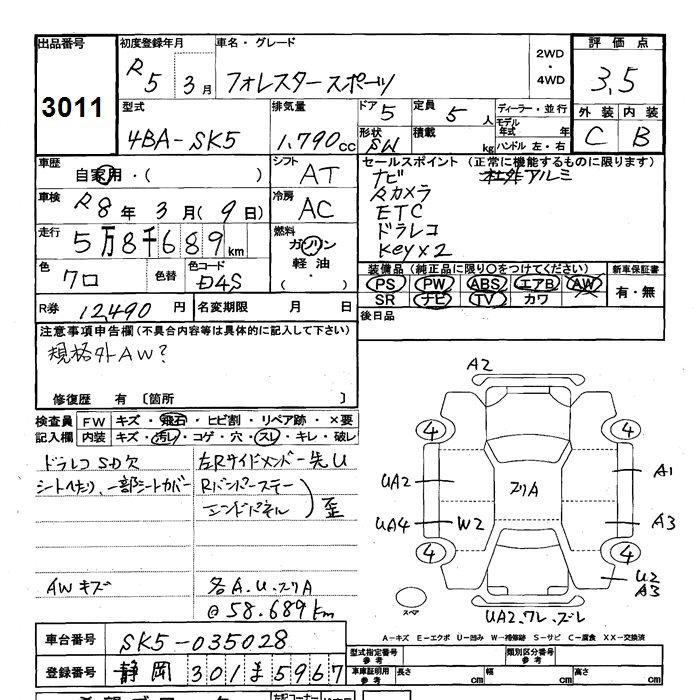 出品番号 初度登録年月 車名・グレード 2WD・4WD 評価点
3011 R5 3月 フォレスター スポーツ 3.5
型式 排気量 ドア 5 定員 5人 ディーラー・並行 外装 内装
4BA-SK5 1.790cc 形状 SW 積載 kg モデル年式 年 ハンドル 左・右 C B
車歴 自家用・( ) シフト AT セールスポイント (正常に機能するものに限ります)
車検 R8年 3月(9日) 冷房 AC
ナビ 社外アルミ
カメラ
ETC
ドラレコ
Key×2
走行 5万8千689km 燃料 ガソリン 軽油・( )
色 クロ 色替 色コード D4S
装備品 (純正品に限り○をつけてください) 新車保証書
PS PW ABS エアB AW 有・無
SR ナビ TV カワ
R券 12,490円 名変期限 月 日 後日品
注意事項申告欄 (不具合内容等は具体的に記入して下さい)
規格外AW?
修復歴 有 〔箇所 〕
検査員記入欄 FW キズ・飛石・ヒビ割・リペア跡・×要
内装 キズ・汚レ・コゲ・穴・スレ・キレ・破レ
ドラレコSD欠 左Rサイドメンバー先U
シートへたり、一部シートカバー Rバンパーステー
エンドパネル 歪
AWキズ 各A.U.スリA
@58.689km
A2
4 4
UA2 スリA A1
UA4 W2 A3
4 4
U2
A3
スペア UA2、ワレ、ズレ
A-キズ E-エクボ U-凹み W-補修跡 S-サビ C-腐食 XX-交換済
車台番号 SK5-035028
登録番号 静岡 301 ま 5967
型式指定番号 参考 類別区分番号 参考
車庫証明用 参考 長さ cm 幅 cm 高さ cm